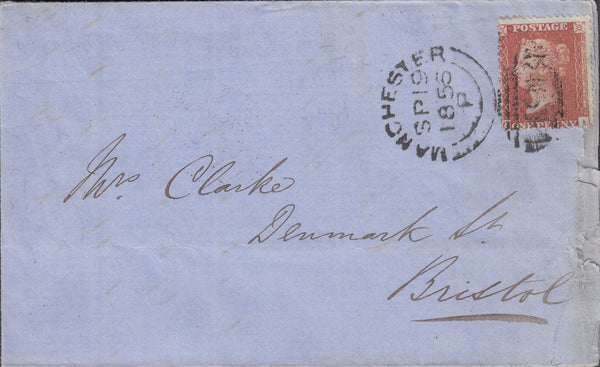 POSTAGE
ONE PENNY
MANCHESTER
SP 19
1856
P
Mrs Clarke
Denmark St.
Bristol